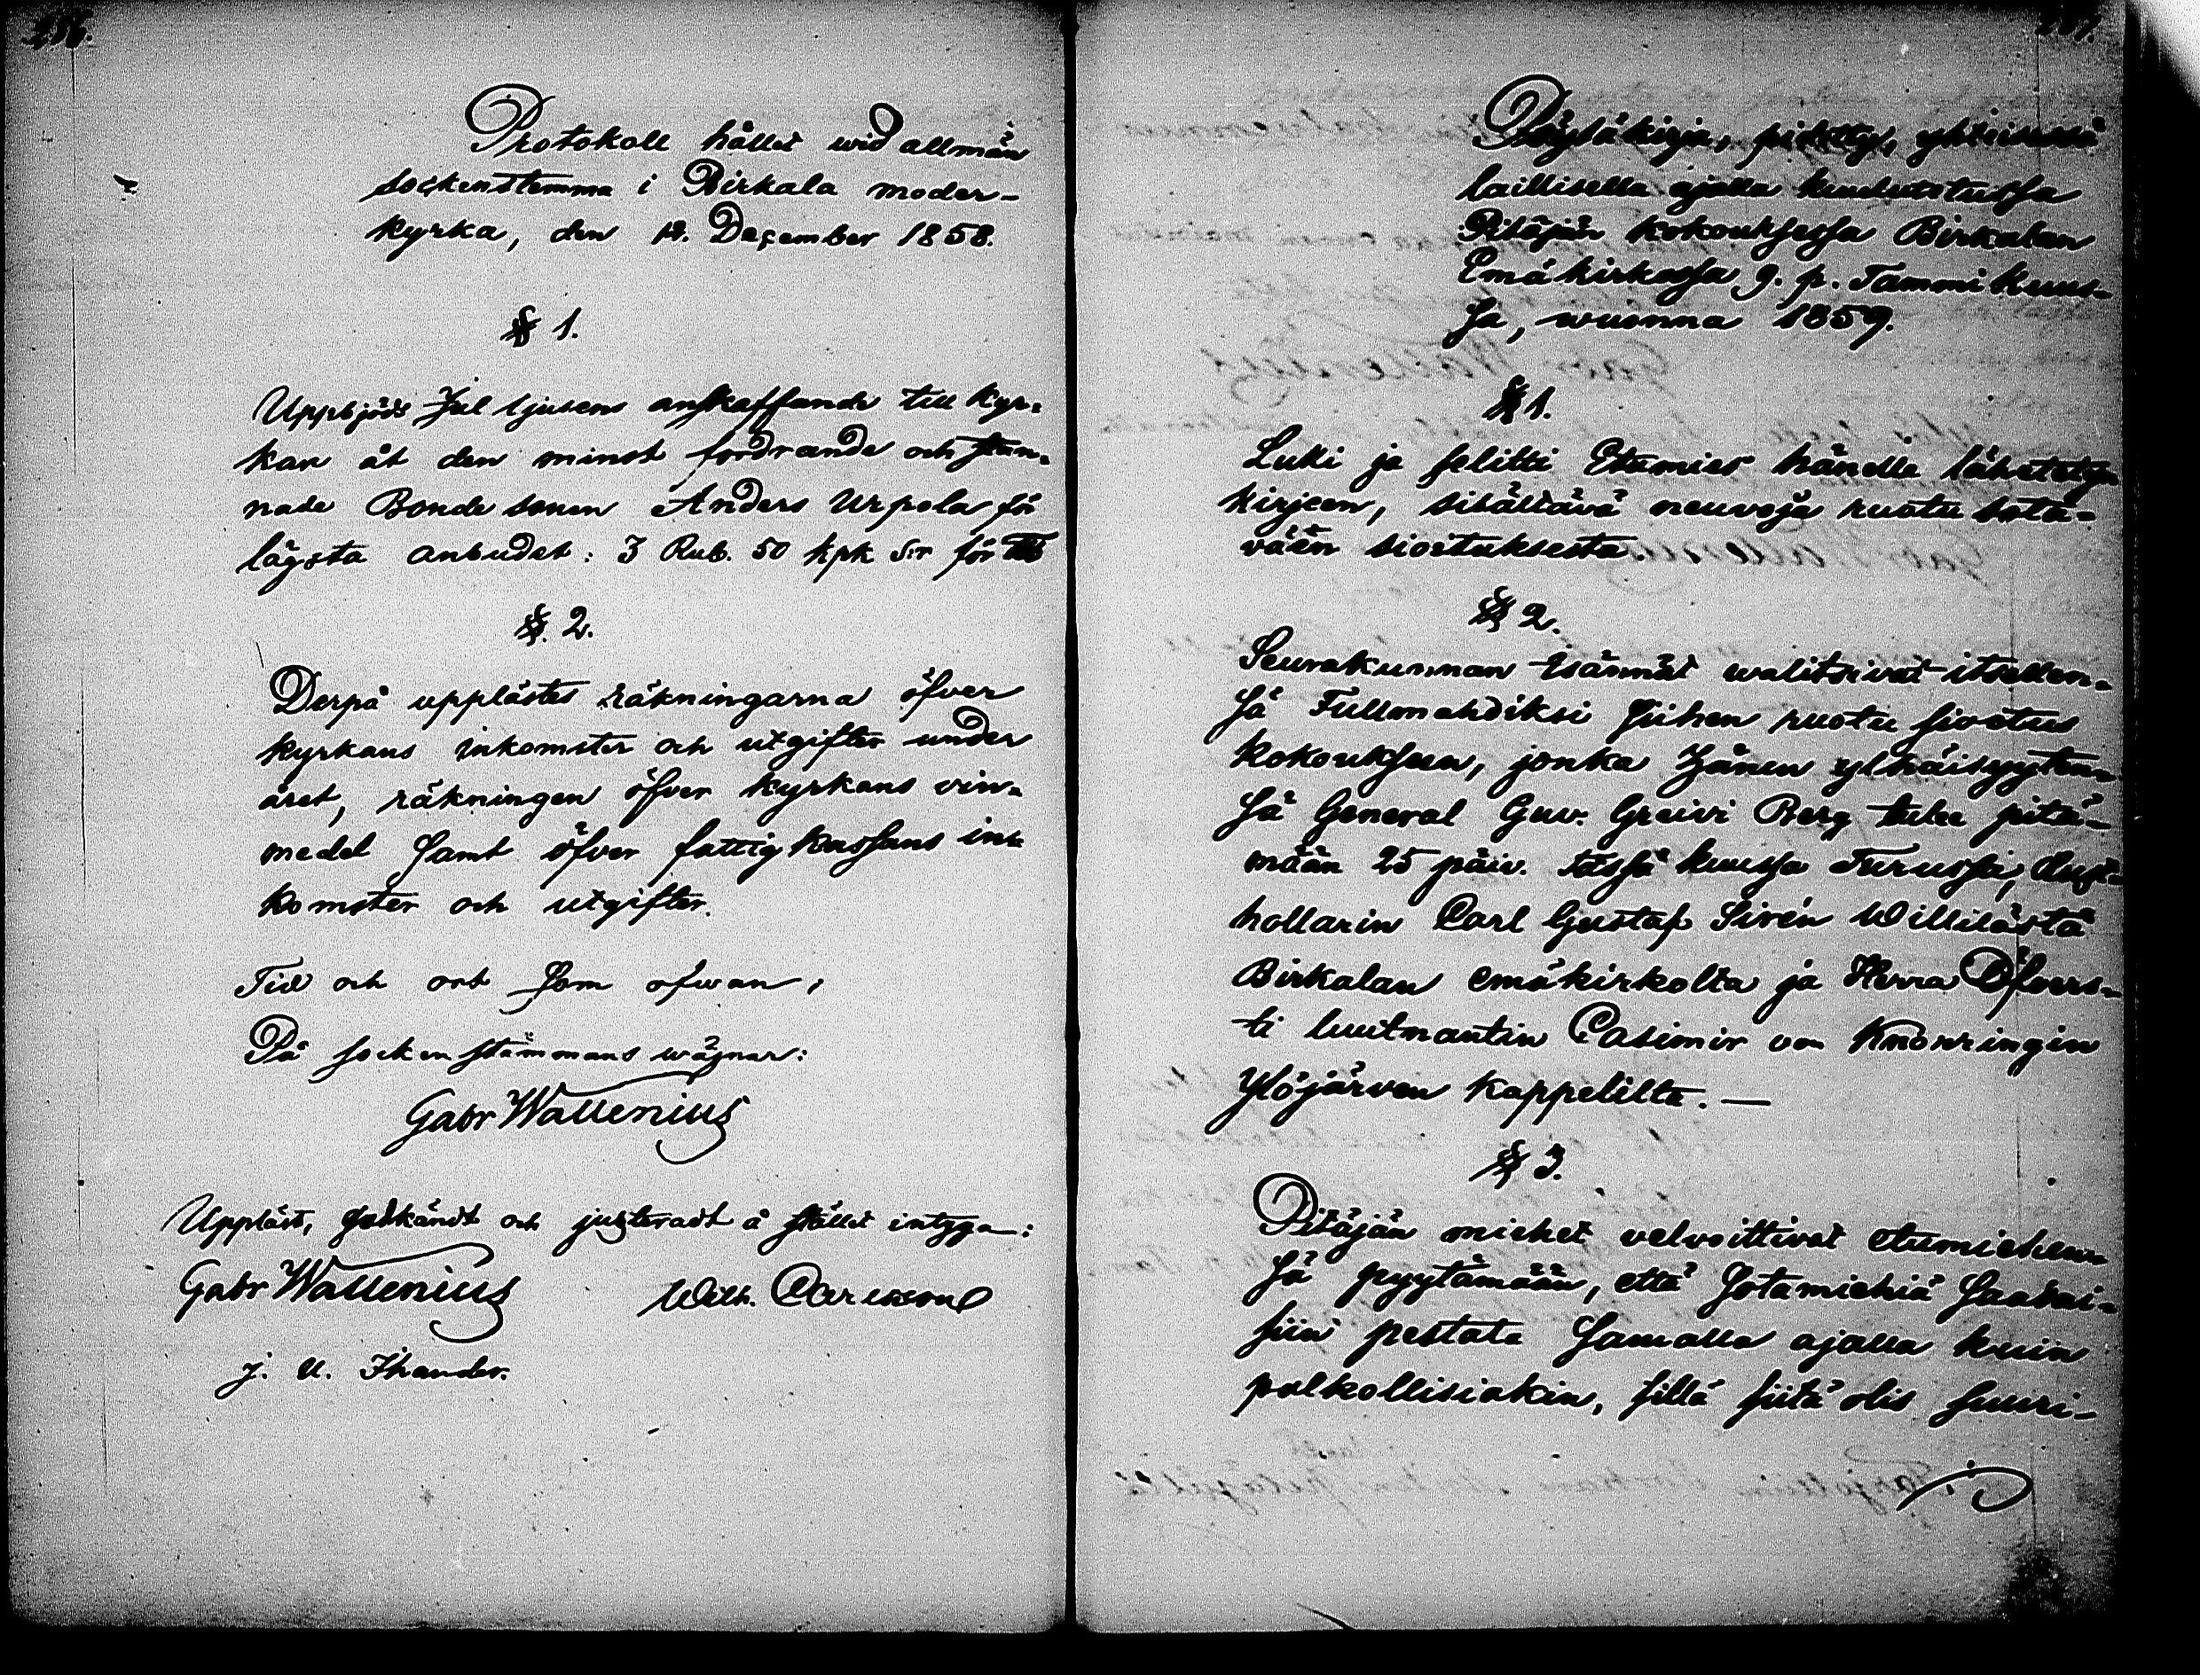 Protokoll hållet wid allmän
sockenstemma i Birkala moder-
kyrka, den 19. December 1858.
§ 1.
Uppbjöds Jul ljusens anskaffande till kyr-
kan åt den minst fordrande och stan-
nade Bonde sonen Anders Urpola för
lägsta anbudet: 3 Rub. 50 kpk S:r för
§. 2.
Derpå upplästes räkningarna öfver
kyrkans inkomster och utgifter under
året, räkningen öfver kyrkans vin-
medel samt öfver fattigkassans in-
komster och utgifter.
Tid och ort som ofwan,
På sockenstämmans wägnar:
Gabr Wallenius
Uppläst, godkändt och justeradt å stället intyga:
Gabr Wallenius Wilh. Carlsson
J. U. Ihander.
Pöytäkirja, pidetty, yhteisessä
laillisella ajalla kuulutetussa
Pitäjän kokouksessa Birkalan
Emäkirkossa 9. p. Tammikuus-
sa, wuonna 1859.
§ 1.
Luki ja selitti Etumies hänelle lähetetyn
kirjeen, sisältävä neuvoja ruotu sota-
väen
§ 2.
Seurakunnan isännät walitsivat itsellen-
sä Fullmahdiksi siihen ruotu
kokoukseen, jonka Hänen ylhäisyyten-
sä General Guv. Greivi Berg tulee pitä-
mään 25 päiv. tässä kuussa Turussa,
hollarin Carl Gustaf Sirén Willilästä
Birkalan emäkirkolta ja Herra Öfvers-
ti luutnantin Casimir von Knorringin
Ylöjärven kappelilta. —
§ 3.
Pitäjän miehet velvoittivat etumiehen-
sä pyytämään, että sotamiehiä saatai-
siin pestata samalla ajalla kuin
palkollisiakin, sillä siitä olis suuri-